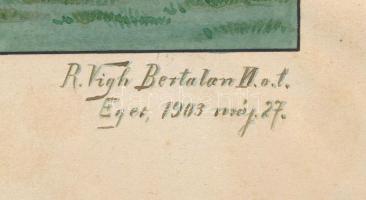 R. Vigh Bertalan II.o.t.
Eger, 1903 máj. 27.